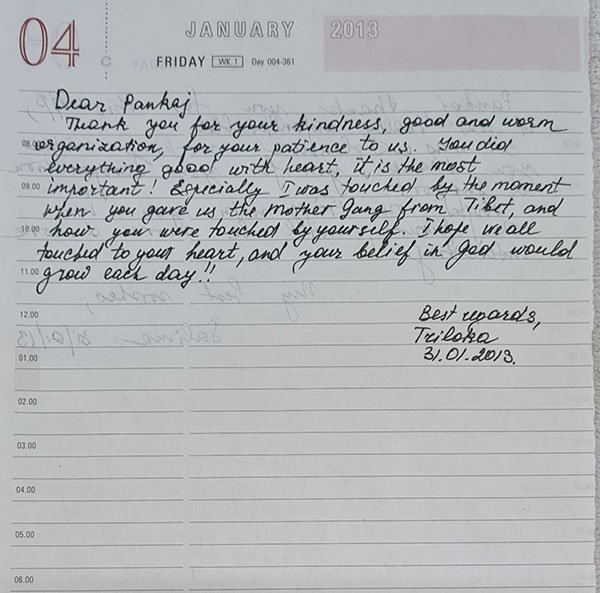 04 JANUARY 2013
C FRIDAY WK 1 Day 004-361
Dear Pankaj
Thank you for your kindness, good and worm
08.00 organization, for your patience to us. You did
everything good with heart, it is the most
09.00 important! Especially I was touched by the moment
when you gave us the Mother Gang from Tibet, and
10.00 how you were touched by yourself. I hope we all
touched to your heart, and your belief in God would
11.00 grow each day!!
12.00 Best regards,
Triloka
01.00 31.01.2013.
02.00
03.00
04.00
05.00
06.00